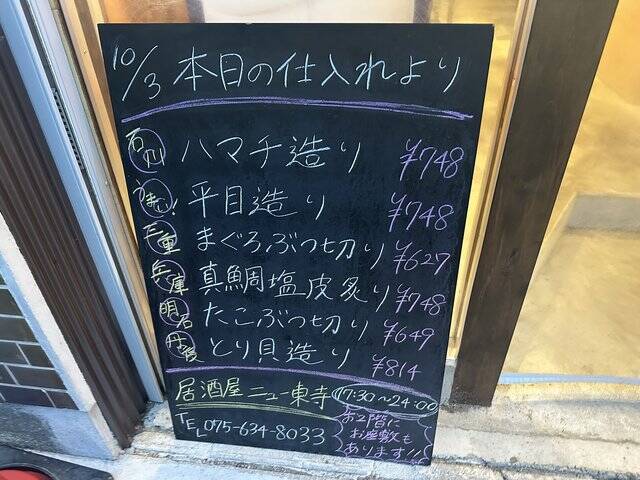 10/3 本日の仕入れより
石川 ハマチ造り ¥748
うまい! 平目造り ¥748
三重 まぐろぶつ切り ¥627
兵庫 真鯛塩皮炙り ¥748
明石 たこぶつ切り ¥649
丹後 とり貝造り ¥814
居酒屋 ニュー東寺 17:30〜24:00
TEL 075-634-8033
お2階に
お座敷も
あります!!